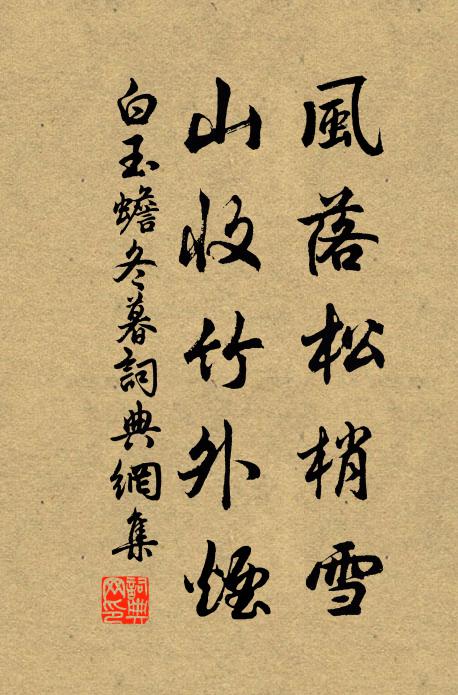 風落松梢雪
山收竹外煙
白玉蟾冬暮詞典網集
詞典网印